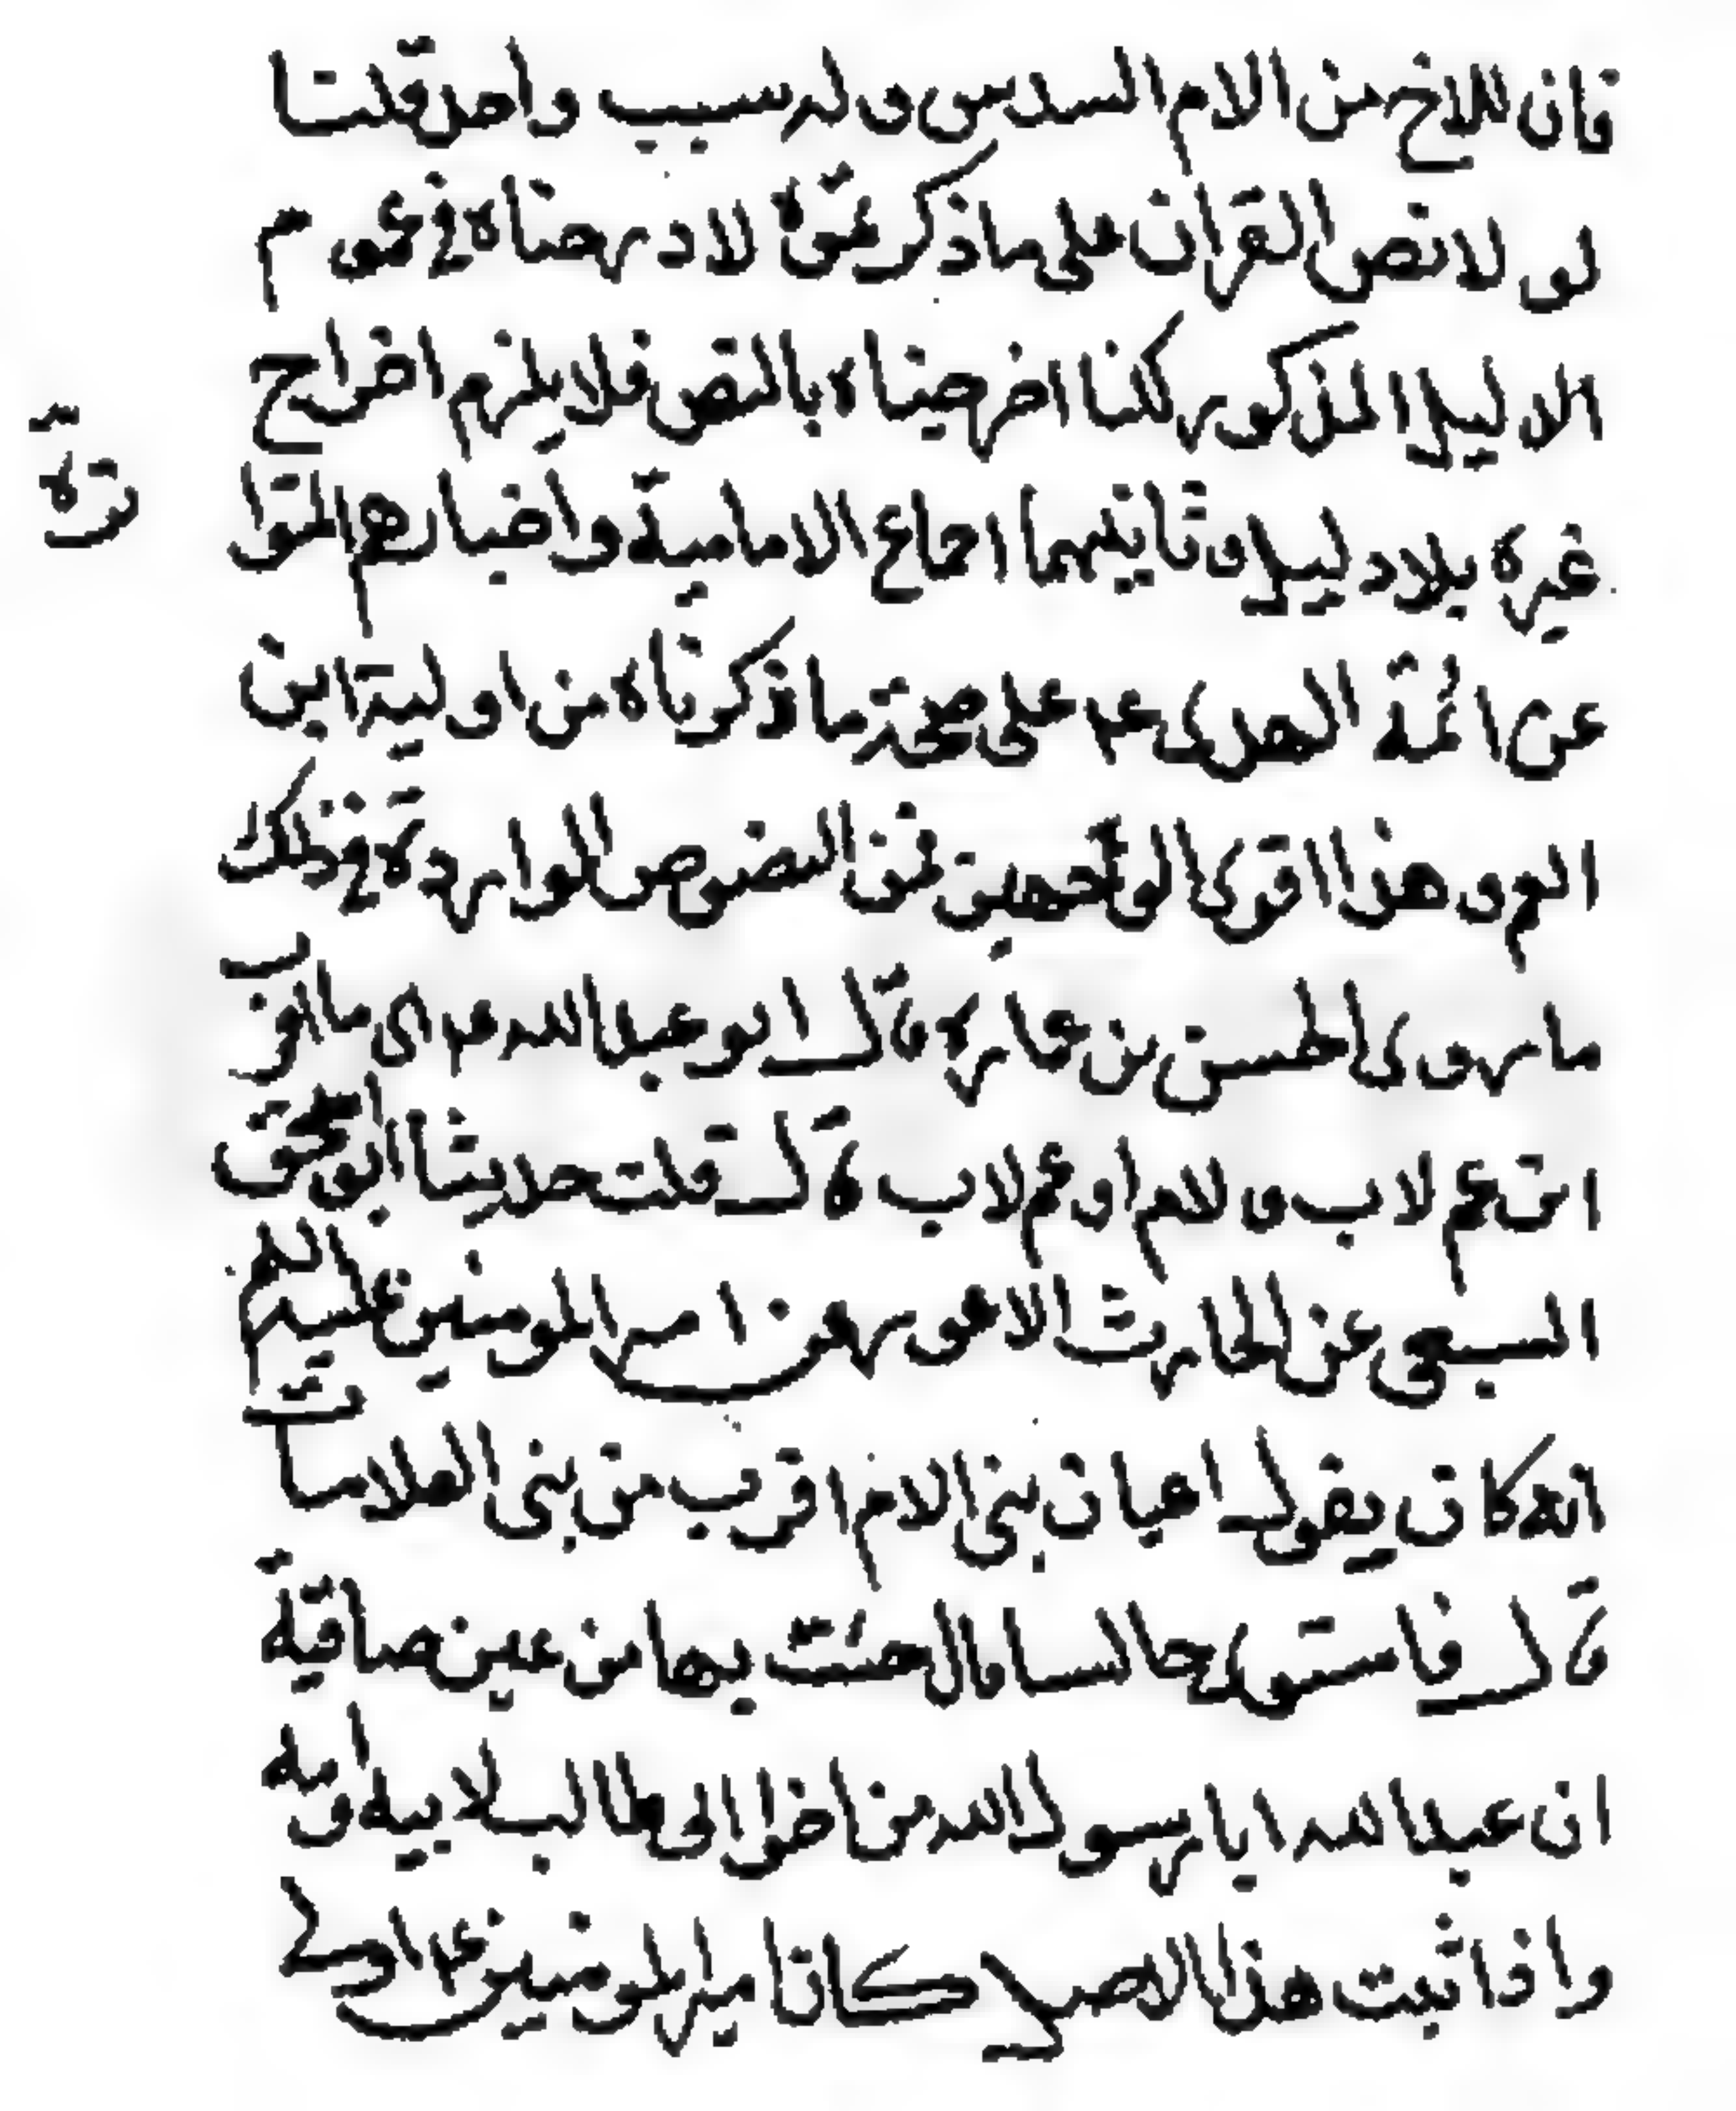 فان للاخ من الام السدس وله سبب واحد قلنا
لولا نص القران على ما ذكرتموه لادرجناه في عموم
الدليل المذكور لكنا اخرجناه بالنص فلا يلزم اخراج
غيره بلا دليل وثانيهما اجماع الامامية واخبارهم المتوا
ترة
عن ائمة الهدى عم على صحة ما ذكرناه من اولية ابن
العم وهذا اقوى الوجهين فمن النصوص الواردة في ذلك
ما روى الحسن بن عمارة قال ابو عبد الله عم اي ما اقرب
ابن عم لاب ولام او عم لاب قال قلت حدثنا ابو اسحق
السبيعي عن الحارث الاعور عن امير المومنين عليه السلم
انه كان يقول اعيان بني الام اقرب من بني العلات
قال فاستوى جالسا قال جئت بها من عين صافية
ان عبد الله ابا رسول الله من اخو ابي طالب لابيه وامه
واذا ثبت هذا الاصل كان امير المومنين عم اولى